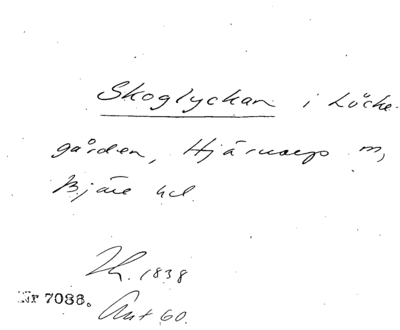 Skoglyckan i Löcke-
gården, Hjärnarp m,
Bjäre hd.
Th. 1838
Nr 7088. Ant 60.